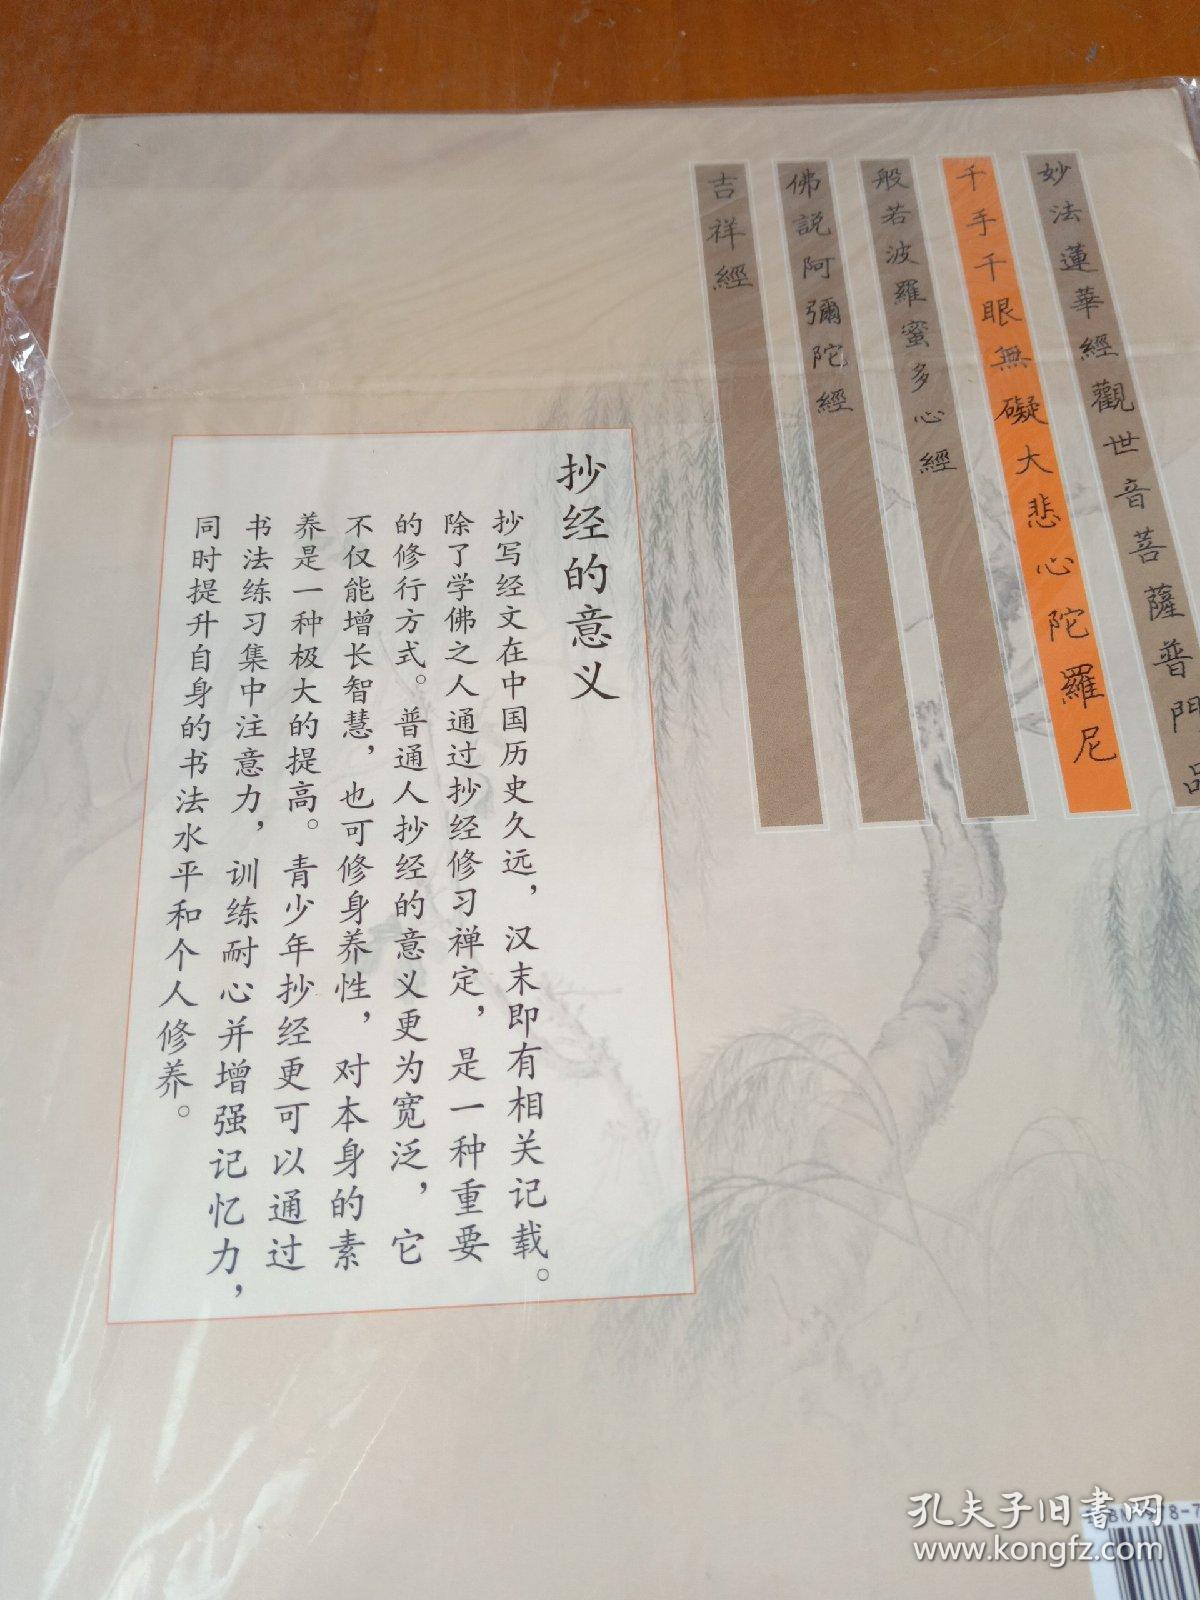 妙法蓮華經觀世音菩薩普門品
千手千眼無礙大悲心陀羅尼
般若波羅蜜多心經
佛說阿彌陀經
吉祥經
抄经的意义
抄写经文在中国历史久远，汉末即有相关记载。
除了学佛之人通过抄经修习禅定，是一种重要
的修行方式。普通人抄经的意义更为宽泛，它
不仅能增长智慧，也可修身养性，对本身的素
养是一种极大的提高。青少年抄经更可以通过
书法练习集中注意力，训练耐心并增强记忆力，
同时提升自身的书法水平和个人修养。
孔夫子旧书网
www.kongfz.com